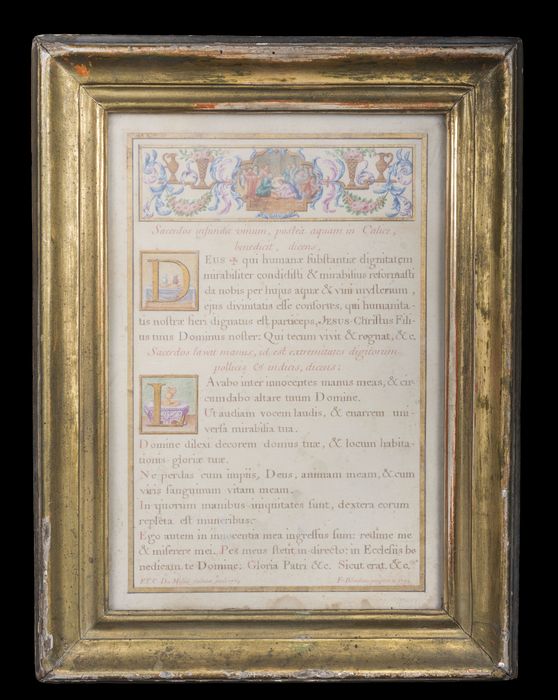 Sacerdos infundit vinum, postea aquam in Calice,
benedicit, dicens,
DEUS ✠ qui humanæ substantiæ dignitatem
mirabiliter condidisti & mirabilius reformasti
da nobis per hujus aquæ & vini mysterium,
ejus divinitatis esse consortes, qui humanita-
tis nostræ fieri dignatus est particeps, JESUS-Christus Fili-
us tuus Dominus noster: Qui tecum vivit & regnat, & c.
Sacerdos lavat manus, id est extremitates digitorum
pollicis & indicis, dicens:
LAvabo inter innocentes manus meas, & cir-
cumdabo altare tuum Domine.
Ut audiam vocem laudis, & enarrem uni-
versa mirabilia tua.
Domine dilexi decorem domus tuæ, & locum habita-
tionis gloriæ tuæ.
Ne perdas cum impiis, Deus, animam meam, & cum
viris sanguinum vitam meam.
In quorum manibus iniquitates sunt, dextera eorum
repleta est muneribus.
Ego autem in innocentia mea ingressus sum: redime me
& miserere mei. Pes meus stetit in directo: in Ecclesiis be
nedicam te Domine. Gloria Patri & c. Sicut erat. & c.